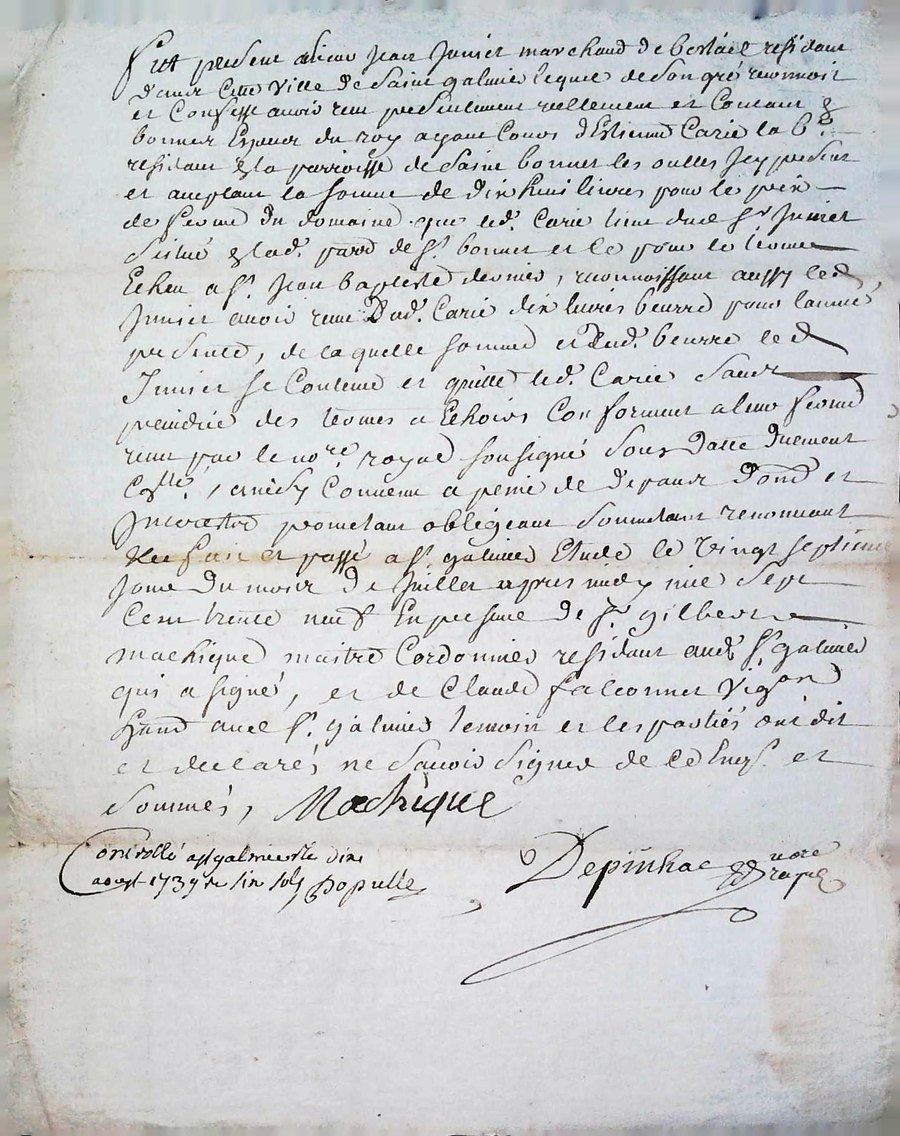 Fut present sieur Jean Junier marchand de bestail residant
dans Cette Ville de Saint galmier lequel de son gré reconnoit
et Confesse avoir reçu presentement reellement et Contant &
bonnes Especes du roy ayant Cours d'Estienne Carie lab.r
residant & la parroisse de Saint bonnet les oulles Icy present
et acceptant la somme de dix huit livres pour le prix
de ferme du domaine que led. Carie tient dud. Sr Junier
Situé & lad. parr. de St. bonnet et le pour le terme
Echeu a St. Jean baptiste dernier, reconnoissant aussy led.
Junier avoir reçu dud. Carie dix livres beurre pour l'année
presente, de laquelle somme et dud. beurre led.
Junier se Contente et quitte led. Carie Sans
prejudice des termes a Echoirs Conforment a leur ferme
reçu par le no.re royal soussigné sous datte duement
Co.llé, ainsy Convenu a peine de depans dom. et
Interests promettant obligeant soumettant renonceant
fait et passé a St. galmier Etude le Vingt septieme
Jour du mois de Juillet apres midy mil Sept
Cent trente neuf En presence de Sr gilbert
machique maitre Cordonnier residant aud. St. galmier
qui a signé, et de Claude falconnet Vigeron
aud. St. galmier temoin et les parties ont dit
et declarés ne Savoir Signer de ce Enq. et
Sommés, Machique
Controllé a St galmier le dix
aoust 1739 re six sols Populle
Depinhac nore
royal